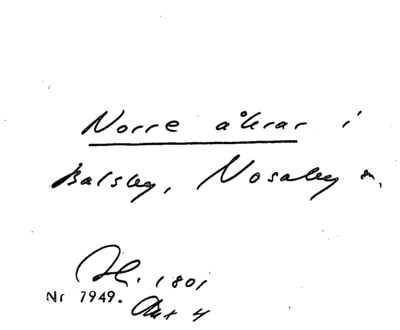 Norre åkrar i
Balsby, Nosaby sn.
H. 1801
Nr 7949.
Akt 4